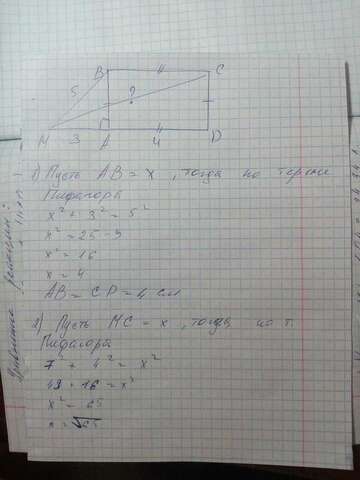 B C
5 ?
M 3 A 4 D
1) Пусть AB = x, тогда по теореме
Пифагора
x² + 3² = 5²
x² = 25 - 9
x² = 16
x = 4
AB = CD = 4 см
2) Пусть MC = x, тогда по т.
Пифагора
7² + 4² = x²
49 + 16 = x²
x² = 65
x = √65